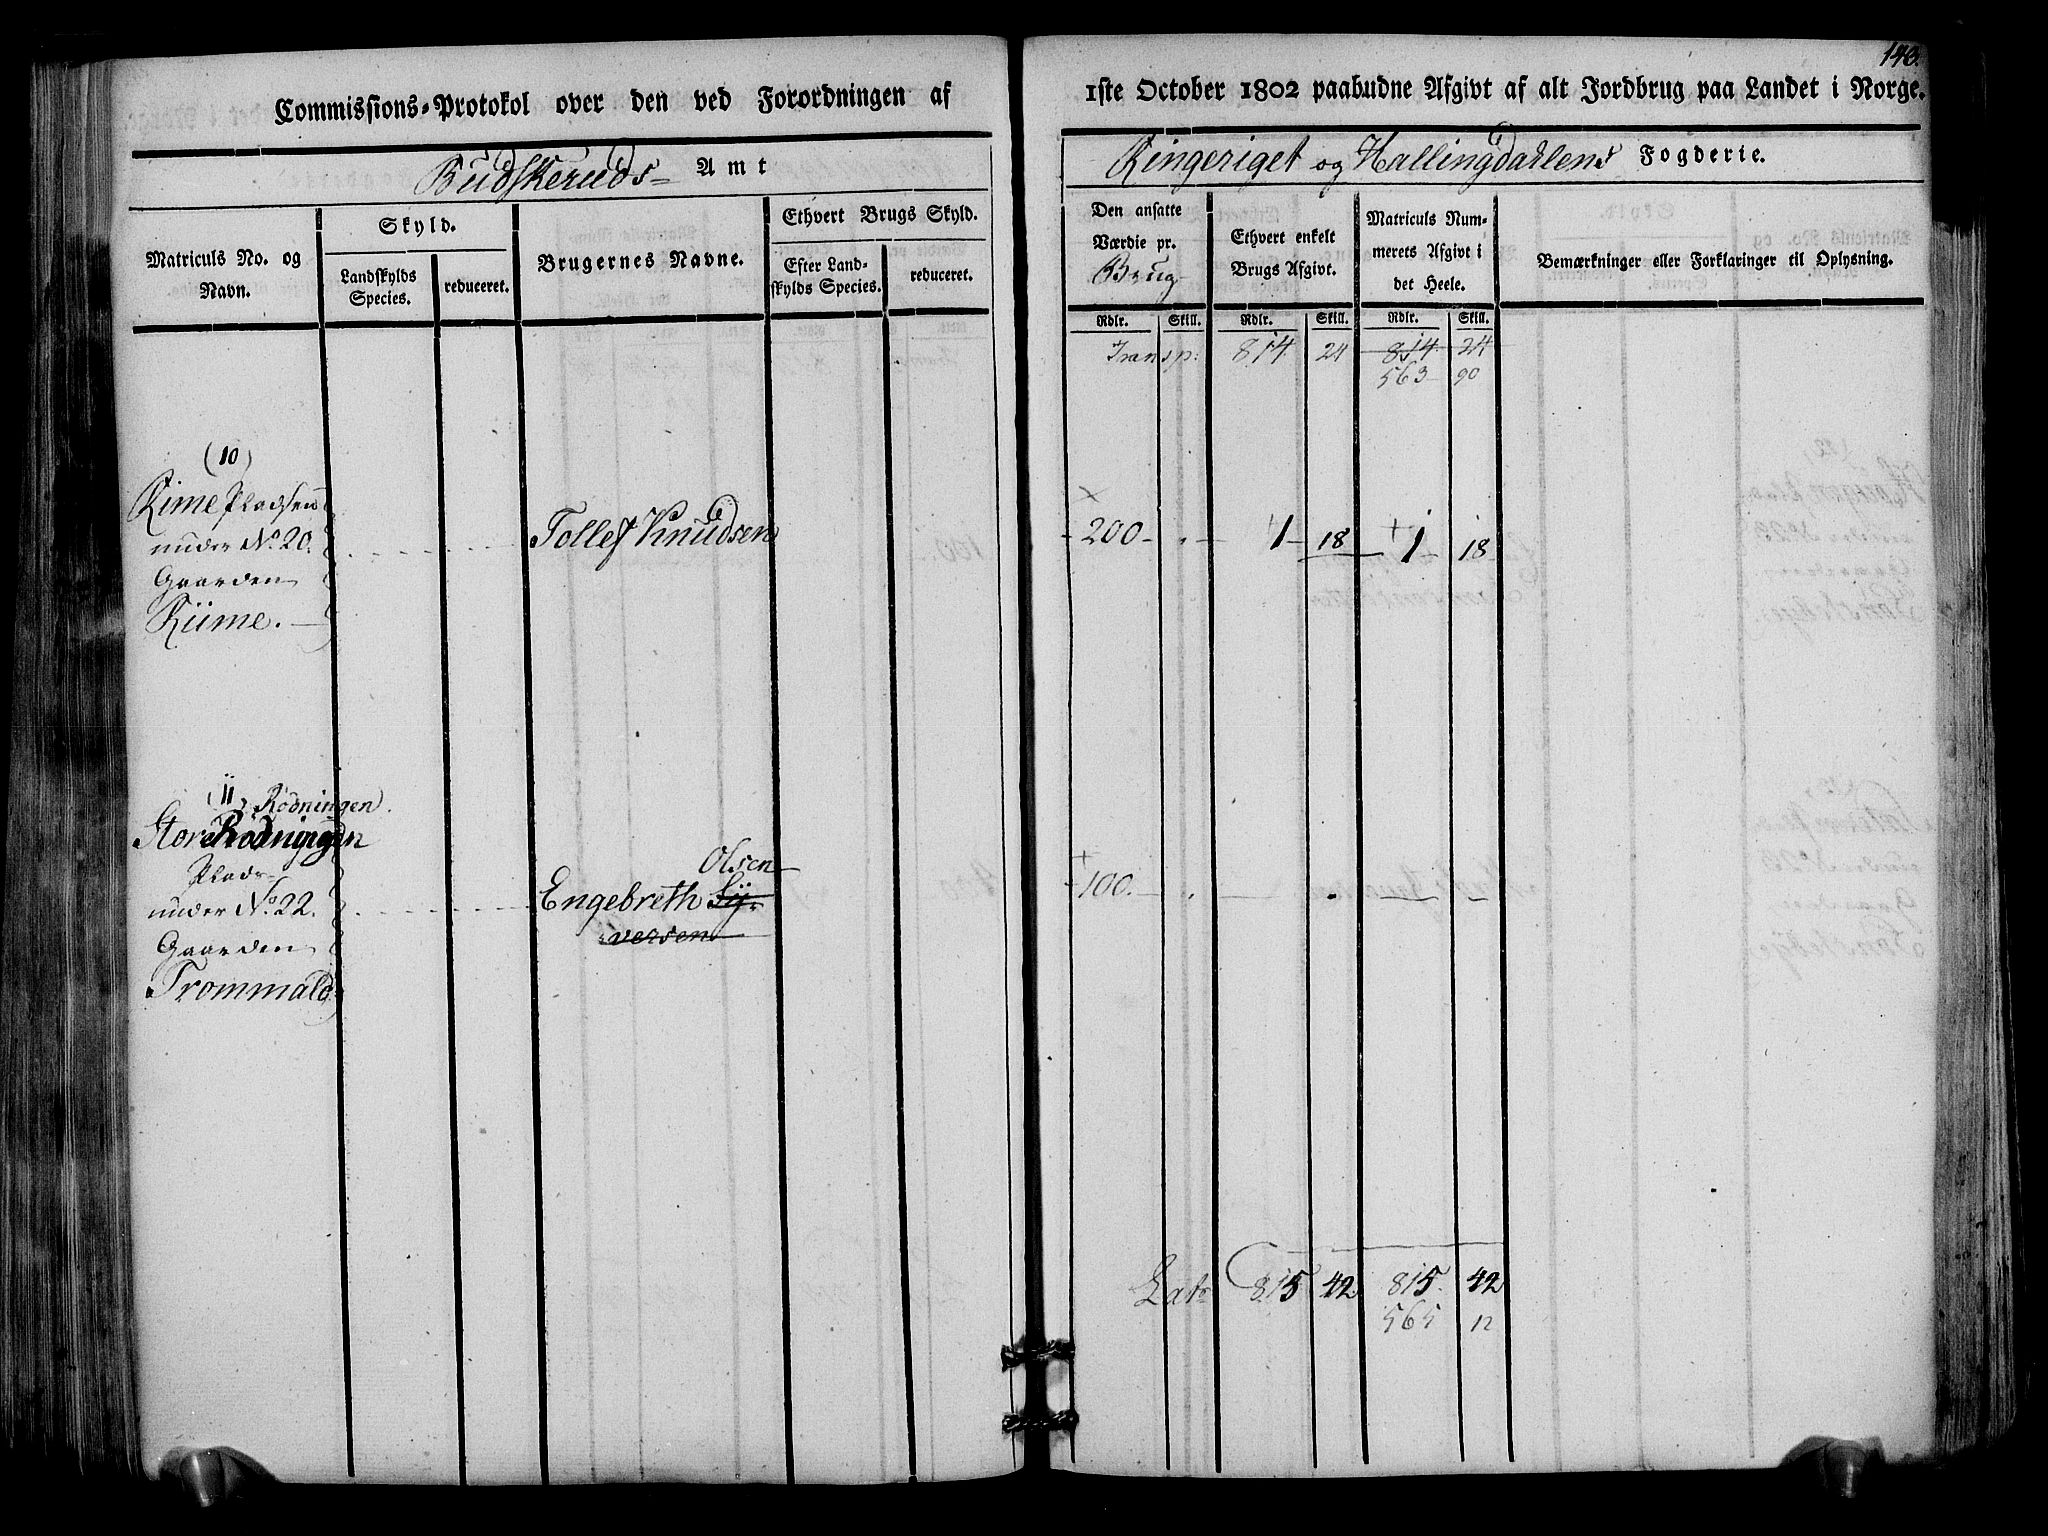 Commissions-Protokol over den ved Forordningen af
Budskeruds Amt
Matriculs No. og Navn.
Skyld.
Landskylds Species.
reduceret.
Brugernes Navne.
Ethvert Brugs Skyld.
Efter Landskylds Species.
reduceret.
(10)
Rime Pladsen
under No. 20.
Gaarden
Riime.
Tollef Knudsen
(11) Rödningen
Store Rödningen
Plads
under No. 22.
Gaarden
Trommald
Olsen
Engebreth Sy-
versen
143.
1ste October 1802 paabudne Afgivt af alt Jordbrug paa Landet i Norge.
Ringeriget og Hallingdahlens Fogderie.
Den ansatte Værdie pr. Brug
Ethvert enkelt Brugs Afgivt.
Matriculs Nummerets Afgivt i det Heele.
Bemærkninger eller Forklaringer til Oplysning.
Rdlr. Skill. Rdlr. Skill. Rdlr. Skill.
Transp: 814 24 814 24
563 90
200 1 18 1 18
100.
Latr 815 42 815 42
565 12